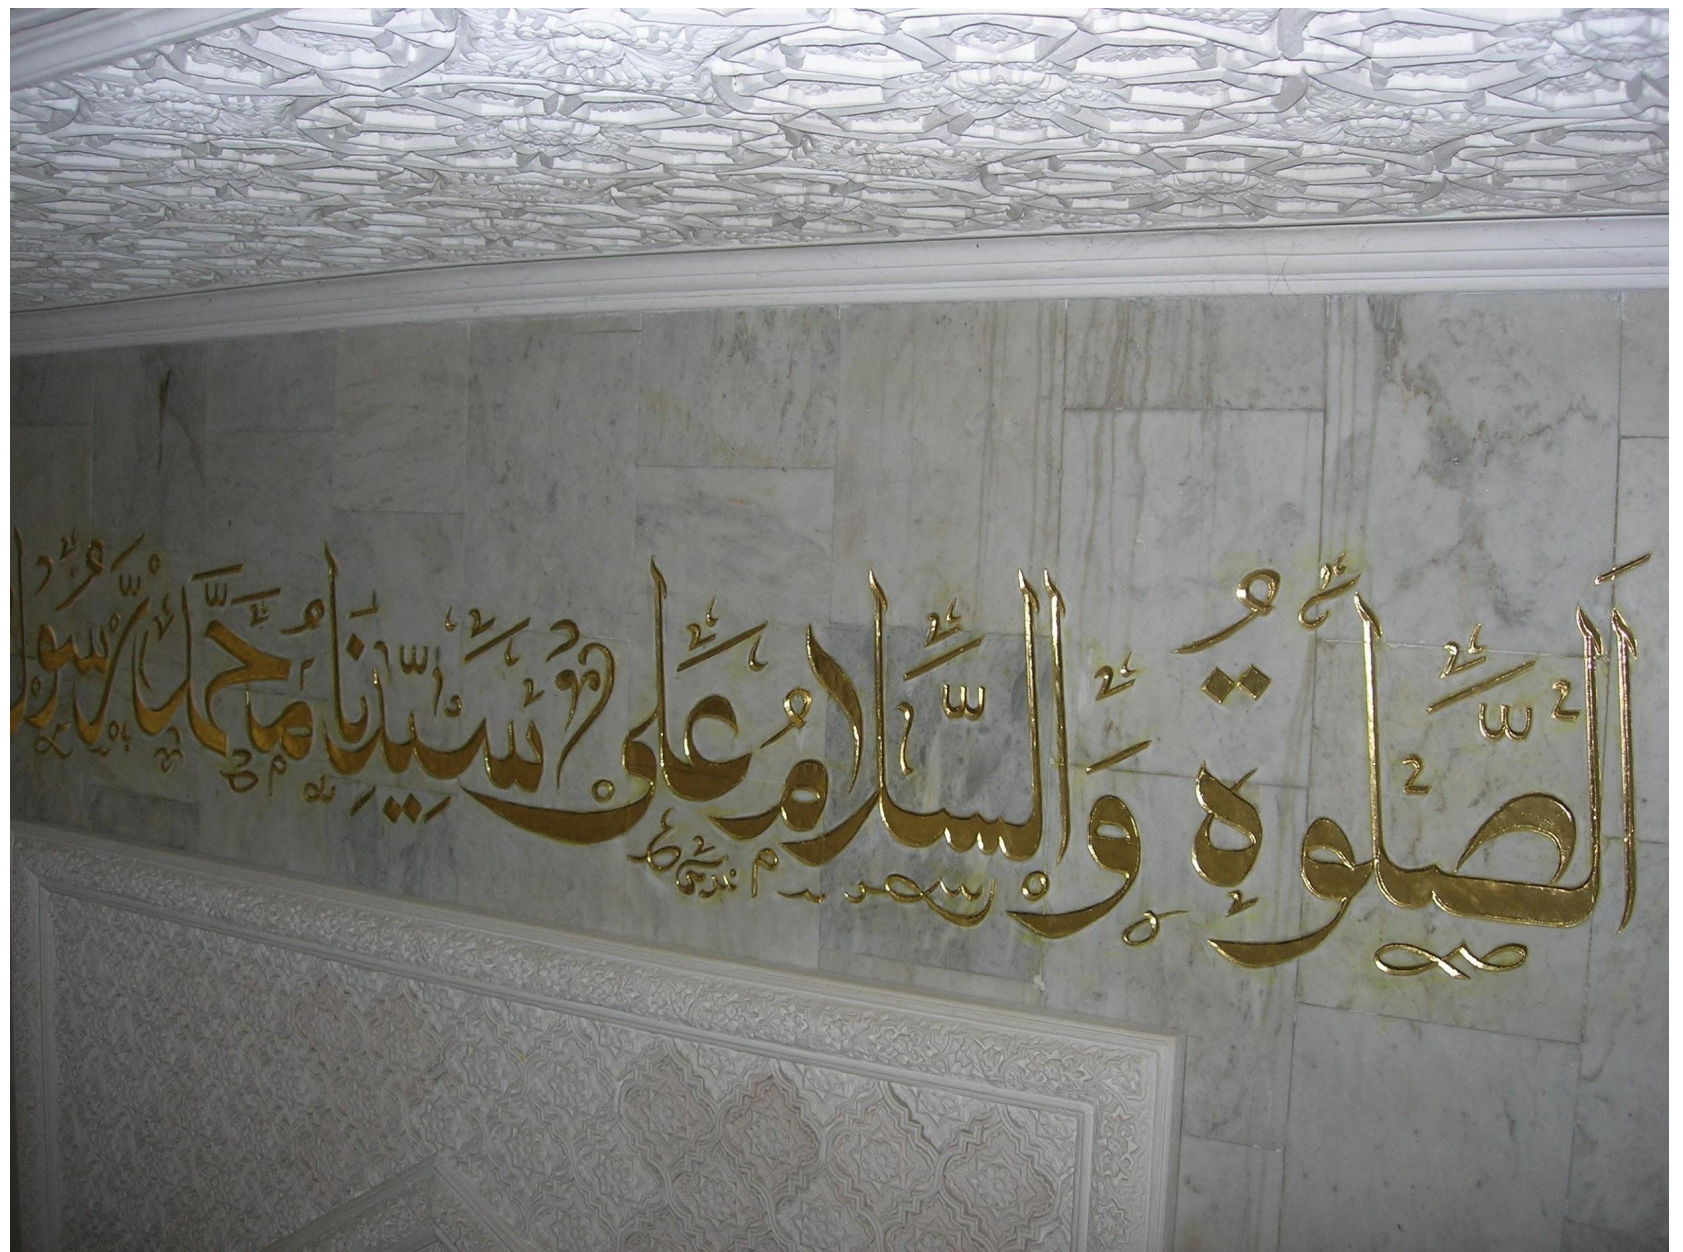 اَلصَّلٰوةُ وَالسَّلَامُ عَلٰى سَيِّدِنَا مُحَمَّدٍ رَّسُوْلِ